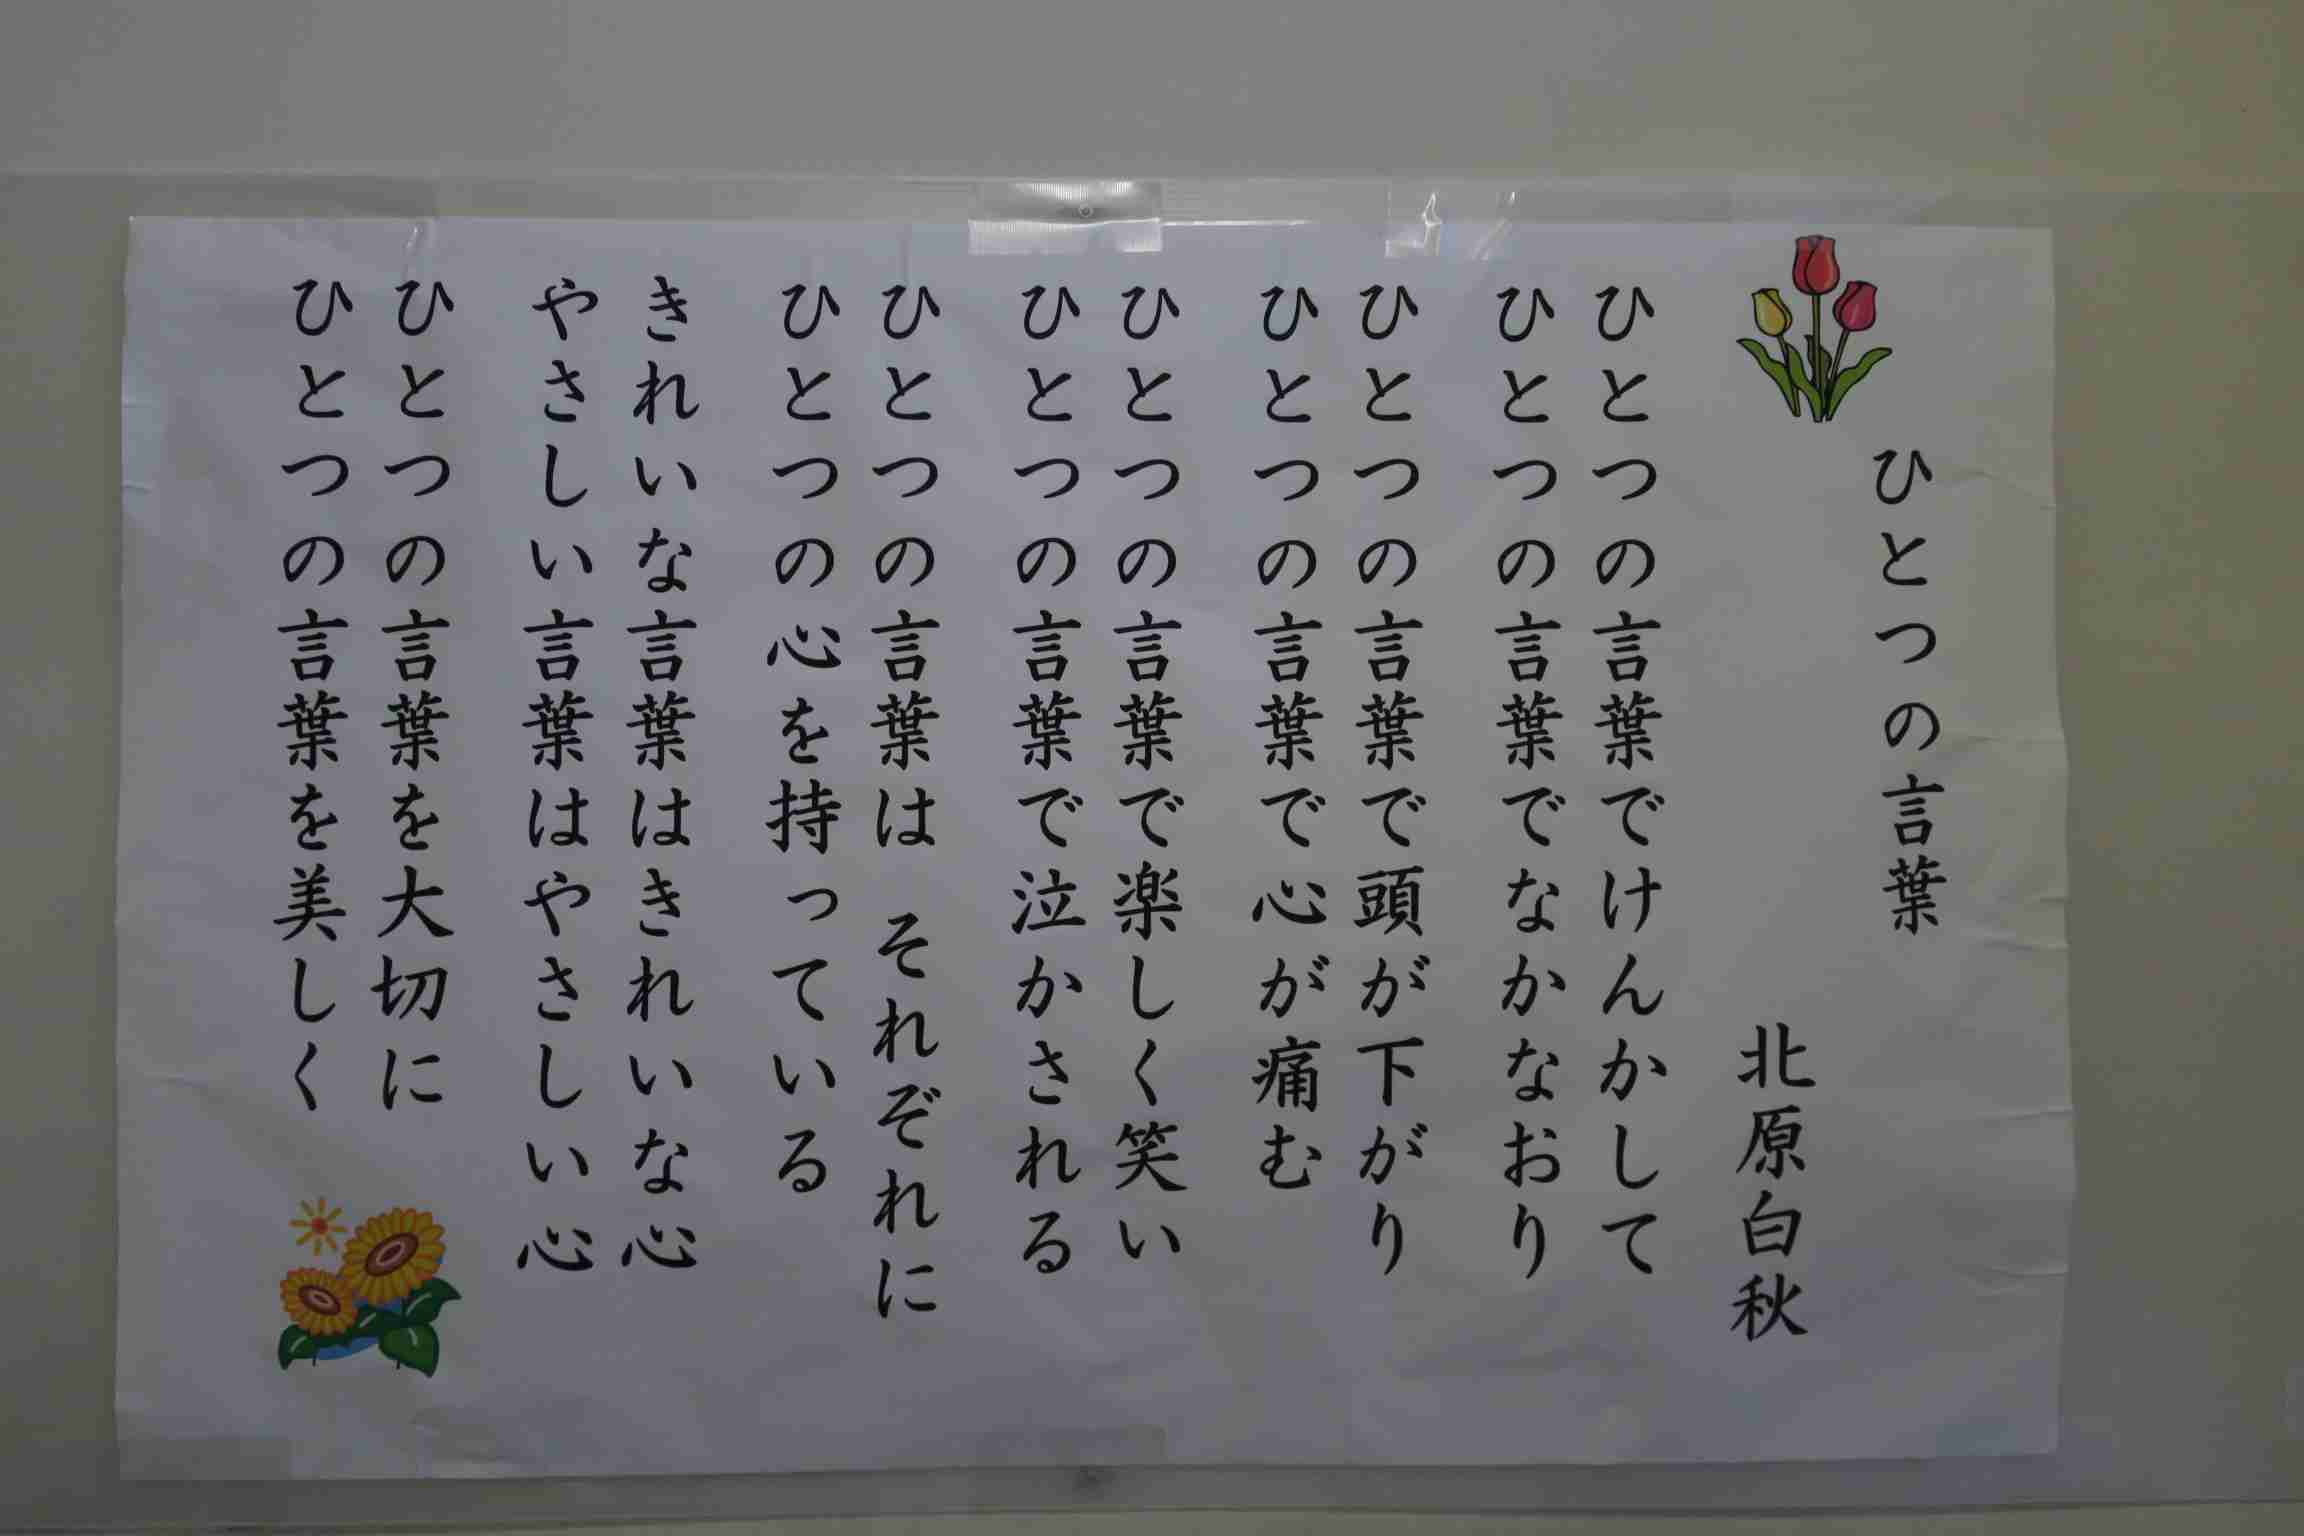 ひとつの言葉
北原白秋
ひとつの言葉でけんかして
ひとつの言葉でなかなおり
ひとつの言葉で頭が下がり
ひとつの言葉で心が痛む
ひとつの言葉で楽しく笑い
ひとつの言葉で泣かされる
ひとつの言葉は　それぞれに
ひとつの心を持っている
きれいな言葉はきれいな心
やさしい言葉はやさしい心
ひとつの言葉を大切に
ひとつの言葉を美しく